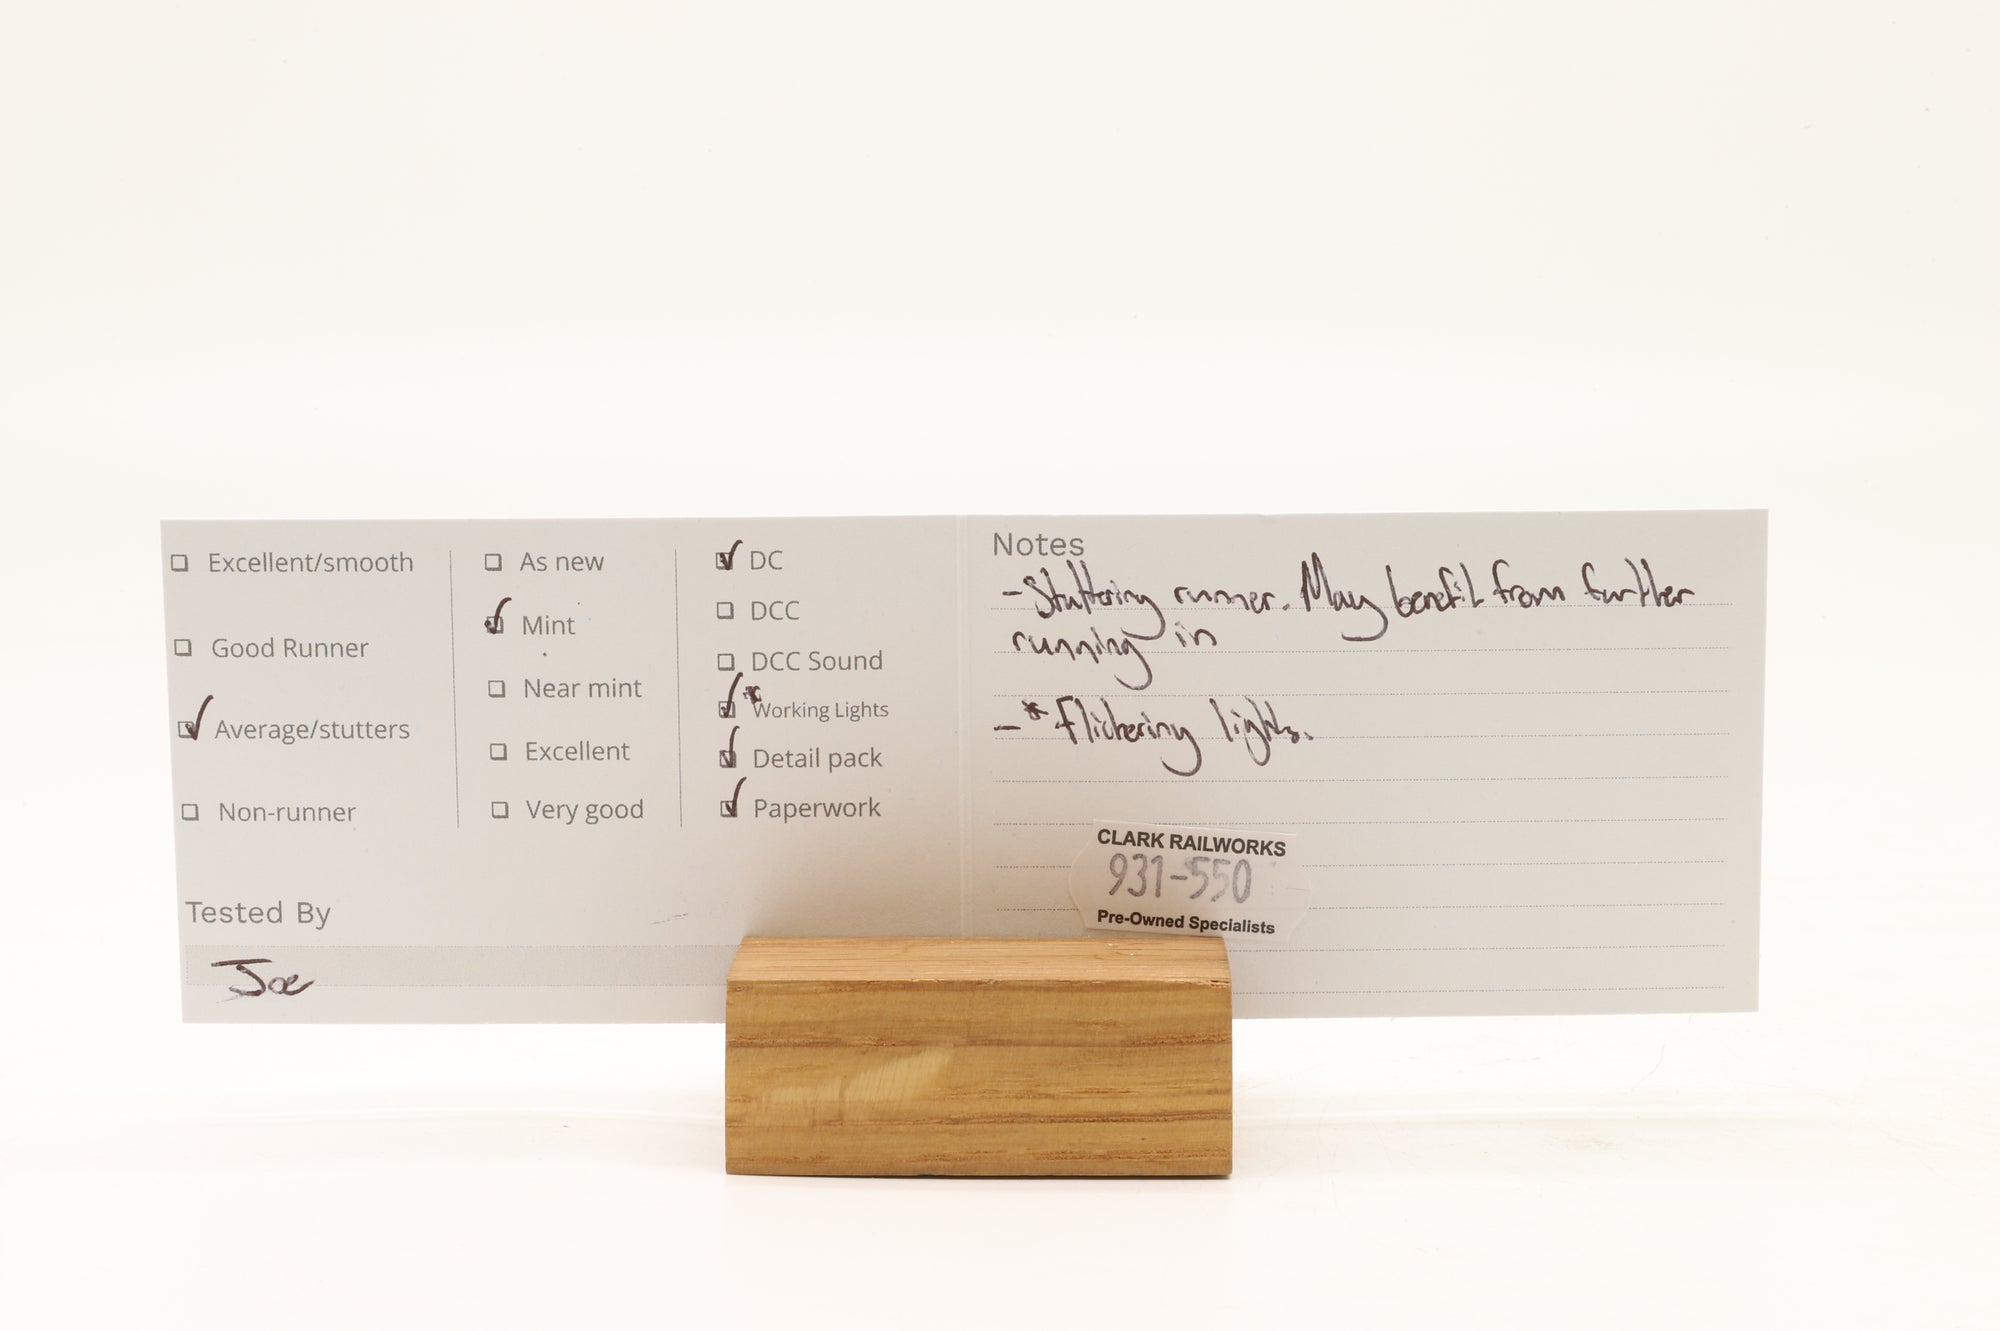 Excellent/smooth
Good Runner
Average/stutters
Non-runner
As new
Mint
Near mint
Excellent
Very good
DC
DCC
DCC Sound
* Working Lights
Detail pack
Paperwork
Tested By
Joe
Notes
- Stuttering runner. May benefit from further
running in
- * Flickering lights.
CLARK RAILWORKS
931-550
Pre-Owned Specialists